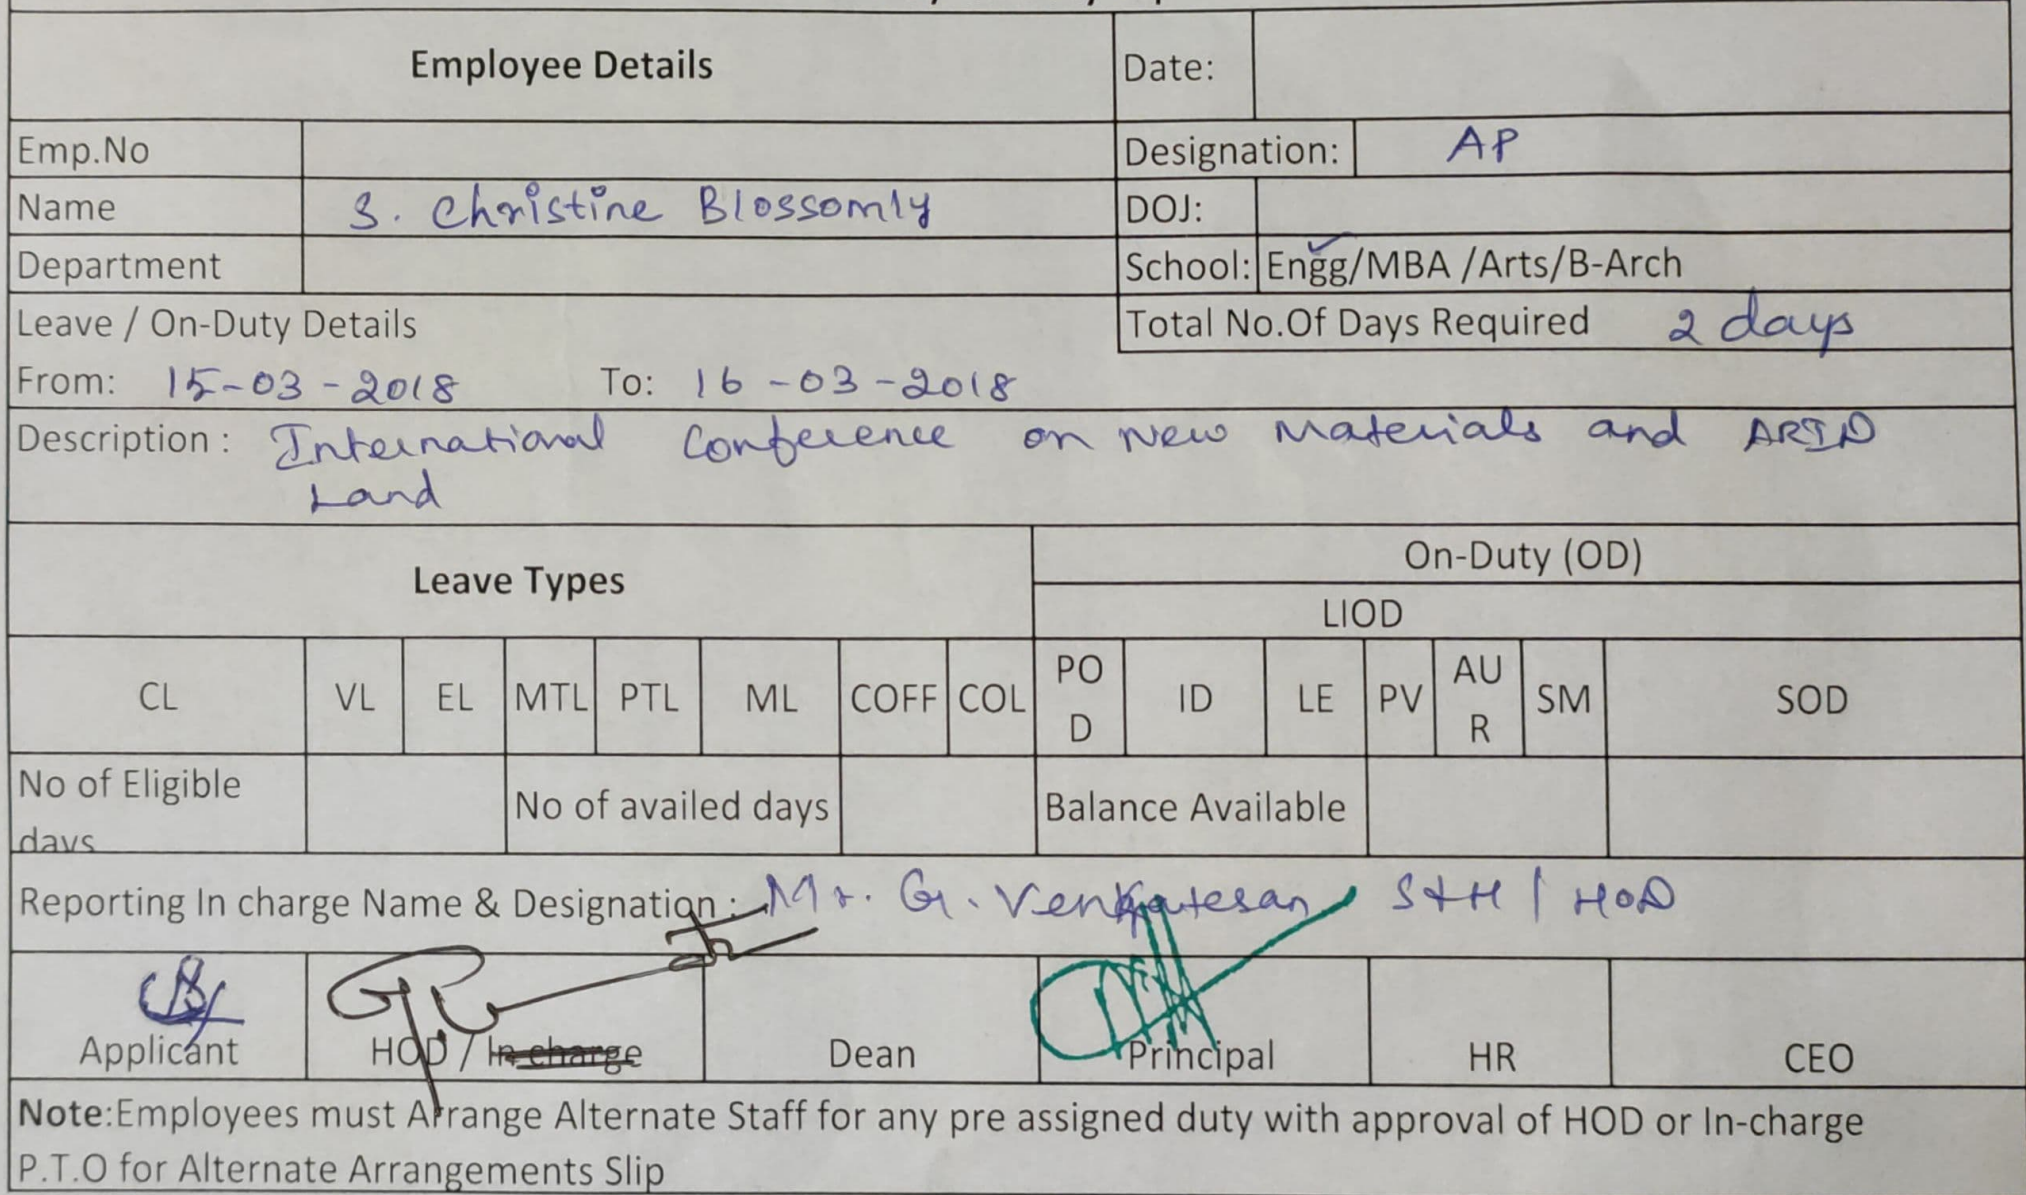 Employee Details Date:
Emp.No Designation: AP
Name S. Christine Blossomly DOJ:
Department School: Engg/MBA /Arts/B-Arch
Leave / On-Duty Details Total No.Of Days Required 2 days
From: 15-03-2018 To: 16-03-2018
Description : International Conference on New Materials and ARID
Land
Leave Types On-Duty (OD)
LIOD
CL VL EL MTL PTL ML COFF COL POD ID LE PV AUR SM SOD
No of Eligible days No of availed days Balance Available
Reporting In charge Name & Designation : Mr. G. Venkatesan S&H / HOD
Applicant HOD / In-charge Dean Principal HR CEO
Note:Employees must Arrange Alternate Staff for any pre assigned duty with approval of HOD or In-charge
P.T.O for Alternate Arrangements Slip